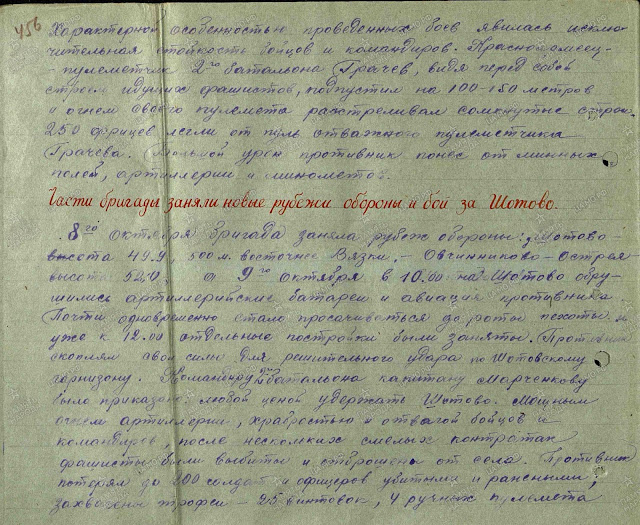 456
Характерной особенностью проведенных боев явилась исклю-
чительная стойкость бойцов и командиров. Красноармеец-
-пулеметчик 2го батальона Грачев, видя перед собой
строем идущих фашистов, подпустил на 100-150 метров
и огнем своего пулемета расстреливал сомкнутые строи.
250 фрицев легли от пуль отважного пулеметчика
Грачева. Большой урон противник понес от минных
полей, артиллерии и минометов.
Части бригады заняли новые рубежи обороны и бой за Шотово.
8го октября бригада заняла рубеж обороны: Шотово
высота 49,9, 500 м. восточнее Вязки, - Овчинниково - Острая
высота 52,0, а 9го октября в 10.00 на Шотово обру-
шились артиллерийские батареи и авиация противника
Почти одновременно стало просачиваться до роты пехоты и
уже к 12.00 отдельные постройки были заняты. Противник
скоплял свои силы для решительного удара по Шотовскому
гарнизону. Командиру 2го батальона капитану Марченкову
было приказано любой ценой удержать Шотово. Мощным
огнем артиллерии, храбростью и отвагой бойцов и
командиров, после нескольких смелых контратак
фашисты были выбиты и отброшены от села. Противник
потерял до 200 солдат и офицеров убитыми и ранеными,
захвачены трофеи - 25 винтовок, 4 ручных пулемета